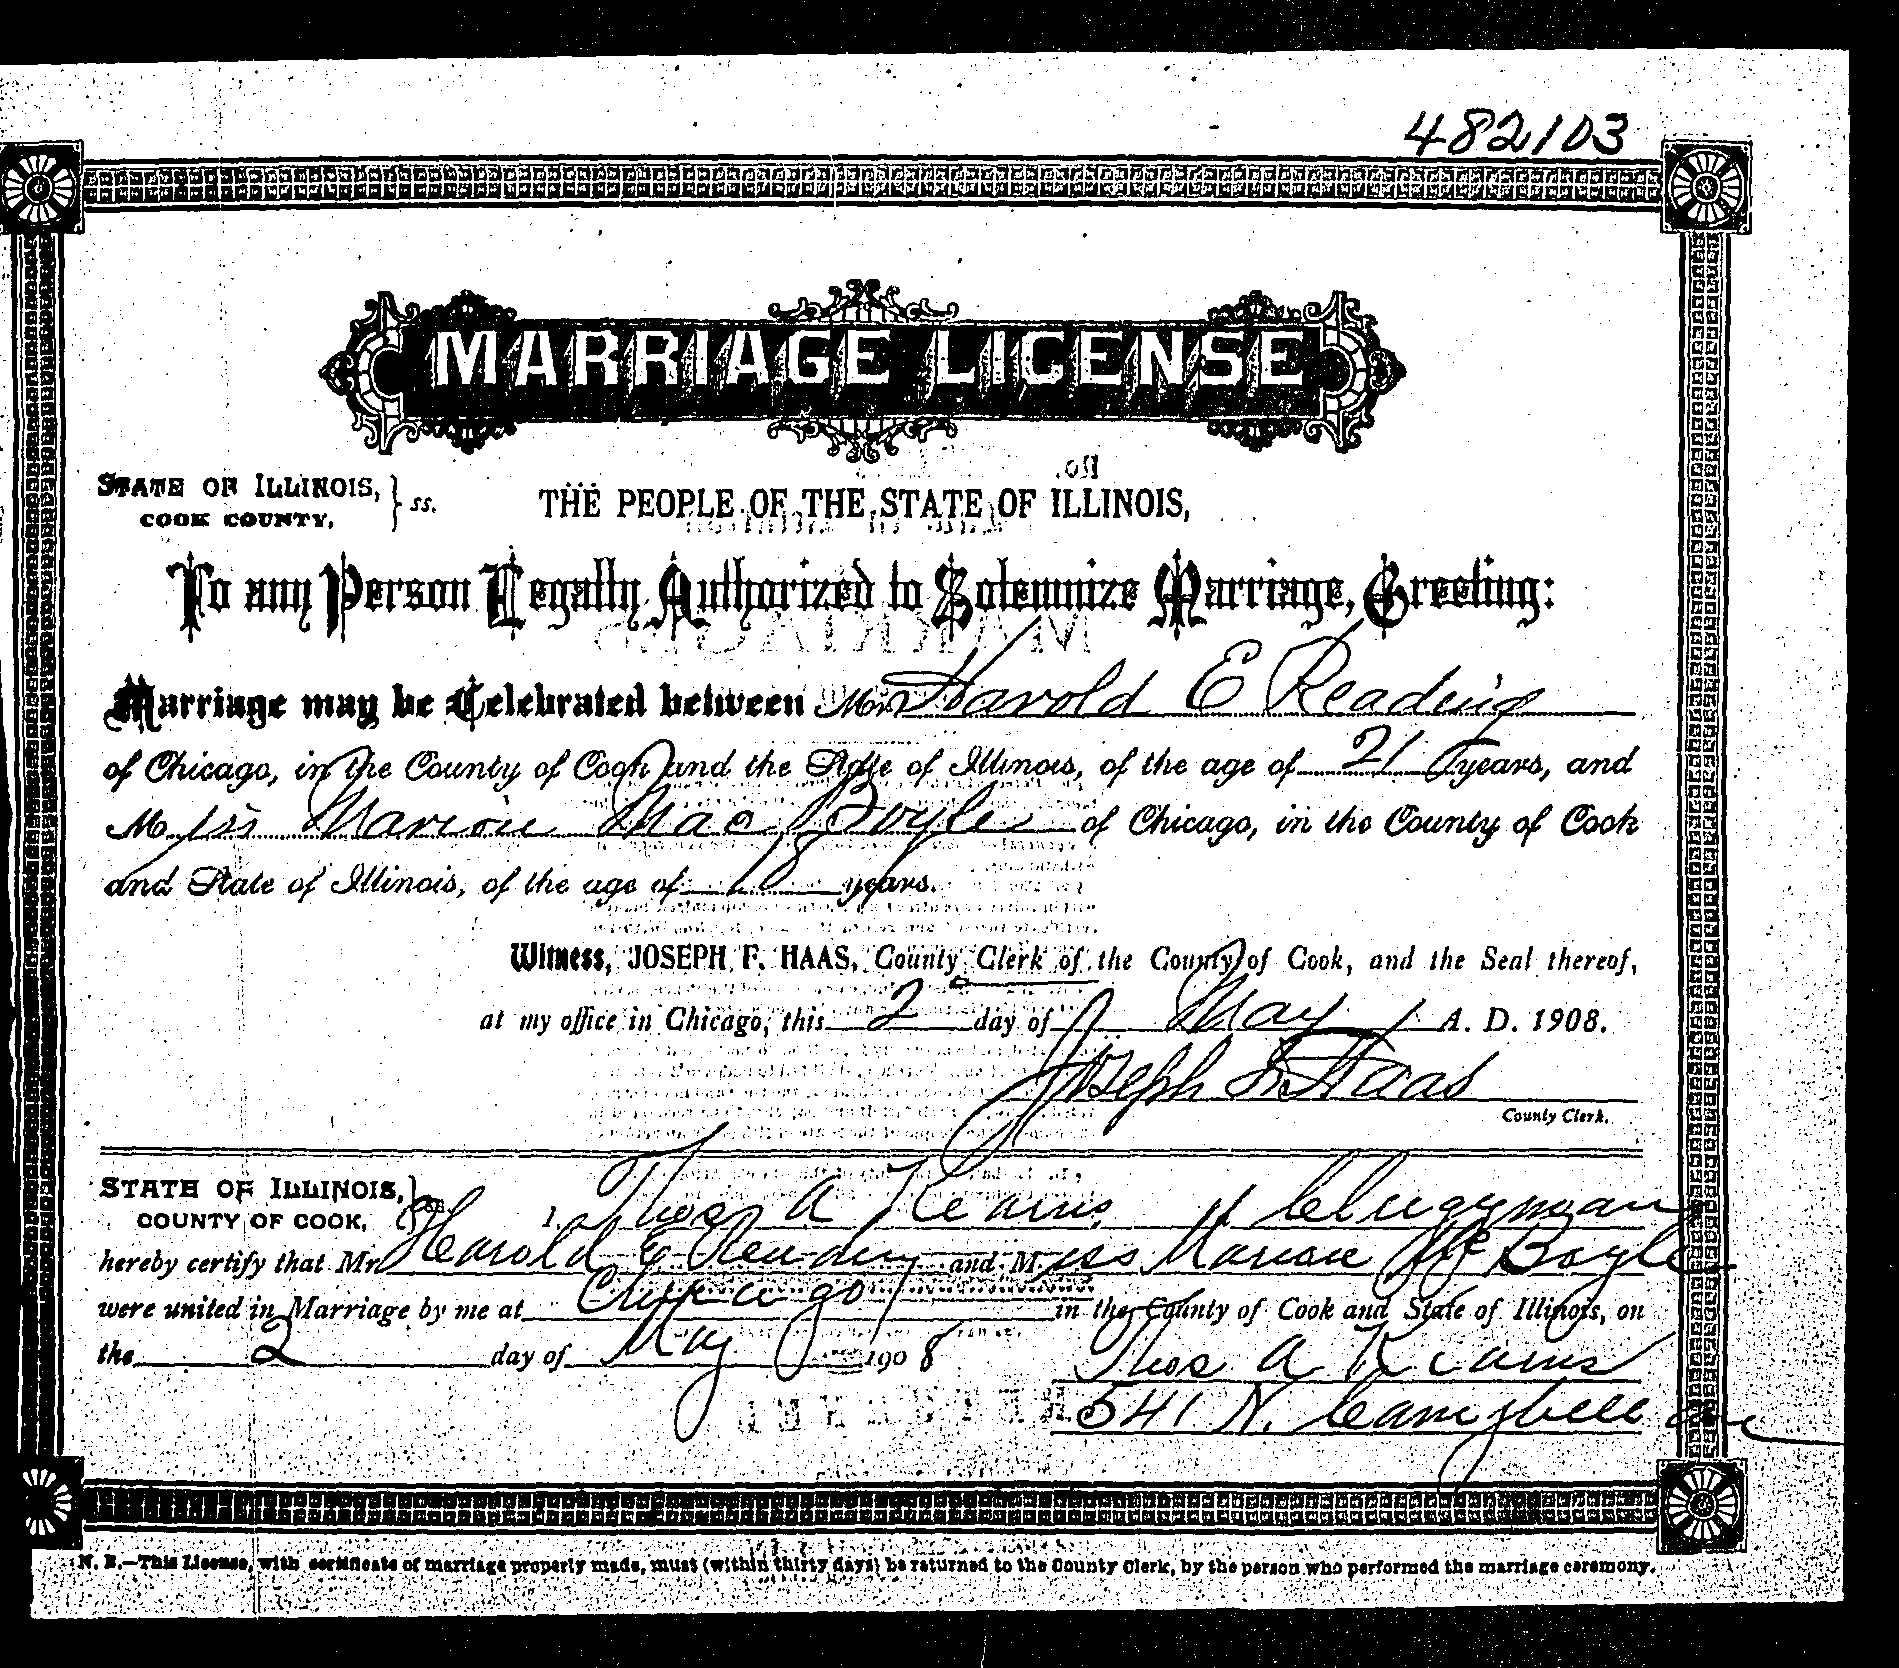 482103
MARRIAGE LICENSE
STATE OF ILLINOIS, } ss.
COOK COUNTY,
THE PEOPLE OF THE STATE OF ILLINOIS,
To any Person Legally Authorized to Solemnize Marriage, Greeting:
Marriage may be Celebrated between Mr. Harold E Reading
of Chicago, in the County of Cook and the State of Illinois, of the age of 21 years, and
Miss Marion Mac Boyle of Chicago, in the County of Cook
and State of Illinois, of the age of 18 years.
Witness, JOSEPH F. HAAS, County Clerk of the County of Cook, and the Seal thereof,
at my office in Chicago, this 2 day of May A. D. 1908.
Joseph F. Haas
County Clerk.
STATE OF ILLINOIS, } ss.
COUNTY OF COOK,
I, Thos A Kearns, a Clergyman
hereby certify that Mr. Harold E Reading and Miss Marion Mc Boyle
were united in Marriage by me at Chicago in the County of Cook and State of Illinois, on
the 2 day of May 1908
Thos A Kearns
541 N. Campbell Ave
N. B.—This License, with certificate of marriage properly made, must (within thirty days) be returned to the County Clerk, by the person who performed the marriage ceremony.